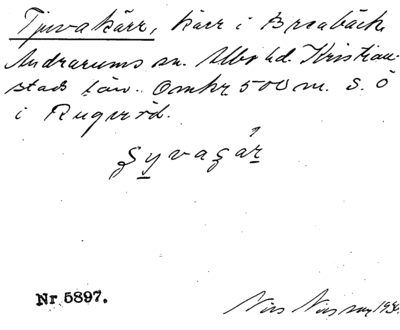 Tjuvakärr, kärr i Braabäck
Andrarums sn. Albo hd. Kristian-
stads län. Omkr 500 m. S. Ö
i Rugeröd.
Nr 5897.
Nils Nilsson